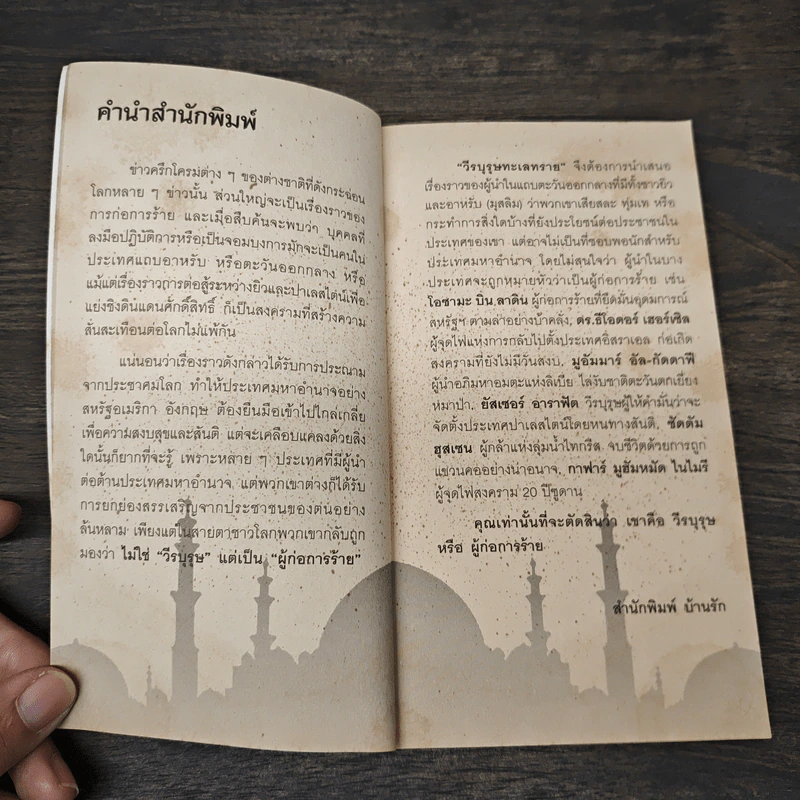 คำนำสำนักพิมพ์
ข่าวครึกโครมต่าง ๆ ของต่างชาติที่ดังกระฉ่อน
โลกหลาย ๆ ข่าวนั้น ส่วนใหญ่จะเป็นเรื่องราวของ
การก่อการร้าย และเมื่อสืบค้นจะพบว่า บุคคลที่
ลงมือปฏิบัติการหรือเป็นจอมบงการมักจะเป็นคนใน
ประเทศแถบอาหรับ หรือตะวันออกกลาง หรือ
แม้แต่เรื่องราวการต่อสู้ระหว่างยิวและปาเลสไตน์เพื่อ
แย่งชิงดินแดนศักดิ์สิทธิ์ ก็เป็นสงครามที่สร้างความ
สั่นสะเทือนต่อโลกไม่แพ้กัน
แน่นอนว่าเรื่องราวดังกล่าวได้รับการประณาม
จากประชาคมโลก ทำให้ประเทศมหาอำนาจอย่าง
สหรัฐอเมริกา อังกฤษ ต้องยื่นมือเข้าไปไกล่เกลี่ย
เพื่อความสงบสุขและสันติ แต่จะเคลือบแคลงด้วยสิ่ง
ใดนั้นก็ยากที่จะรู้ เพราะหลาย ๆ ประเทศที่มีผู้นำ
ต่อต้านประเทศมหาอำนาจ แต่พวกเขาต่างก็ได้รับ
การยกย่องสรรเสริญจากประชาชนของตนอย่าง
ล้นหลาม เพียงแต่ในสายตาชาวโลกพวกเขากลับถูก
มองว่า ไม่ใช่ “วีรบุรุษ” แต่เป็น “ผู้ก่อการร้าย”
“วีรบุรุษทะเลทราย” จึงต้องการนำเสนอ
เรื่องราวของผู้นำในแถบตะวันออกกลางที่มีทั้งชาวยิว
และอาหรับ (มุสลิม) ว่าพวกเขาเสียสละ ทุ่มเท หรือ
กระทำการสิ่งใดบ้างที่ยังประโยชน์ต่อประชาชนใน
ประเทศของเขา แต่อาจไม่เป็นที่ชอบพอนักสำหรับ
ประเทศมหาอำนาจ โดยไม่สนใจว่า ผู้นำในบาง
ประเทศจะถูกหมายหัวว่าเป็นผู้ก่อการร้าย เช่น
โอซามะ บิน ลาดิน ผู้ก่อการร้ายที่ยึดมั่นอุดมการณ์
สหรัฐฯ ตามล่าอย่างบ้าคลั่ง, ดร.ธีโอดอร์ เฮอร์เซิล
ผู้จุดไฟแห่งการกลับไปตั้งประเทศอิสราเอล ก่อเกิด
สงครามที่ยังไม่มีวันสงบ, มูอัมมาร์ อัล-กัดดาฟี
ผู้นำอภิมหาอมตะแห่งลิเบีย ไล่งับชาติตะวันตกเยี่ยง
หมาป่า, ยัสเซอร์ อาราฟัต วีรบุรุษผู้ให้คำมั่นว่าจะ
จัดตั้งประเทศปาเลสไตน์โดยหนทางสันติ, ซัดดัม
ฮุสเซน ผู้กล้าแห่งลุ่มน้ำไทกริส จบชีวิตด้วยการถูก
แขวนคออย่างน่าอนาจ, กาฟาร์ มูฮัมหมัด ไนไมรี
ผู้จุดไฟสงคราม 20 ปีซูดาน
คุณเท่านั้นที่จะตัดสินว่า เขาคือ วีรบุรุษ
หรือ ผู้ก่อการร้าย
สำนักพิมพ์ บ้านรัก